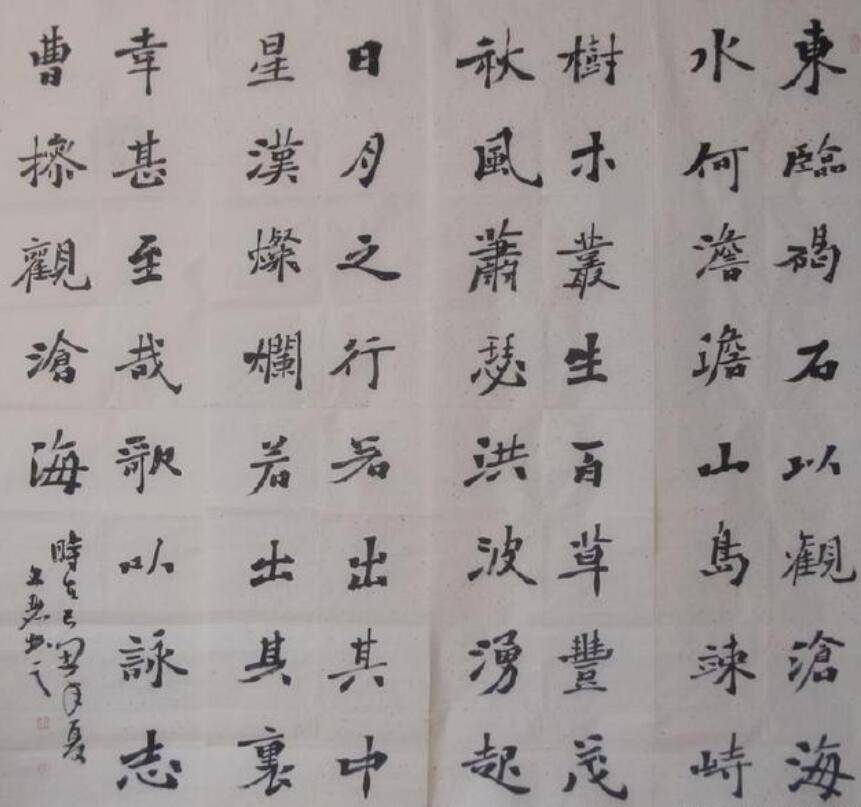 東臨碣石以觀滄海
水何澹澹山島竦峙
樹木叢生百草豐茂
秋風蕭瑟洪波湧起
日月之行若出其中
星漢燦爛若出其裏
幸甚至哉歌以詠志
曹操觀滄海
時在己丑年夏
書之